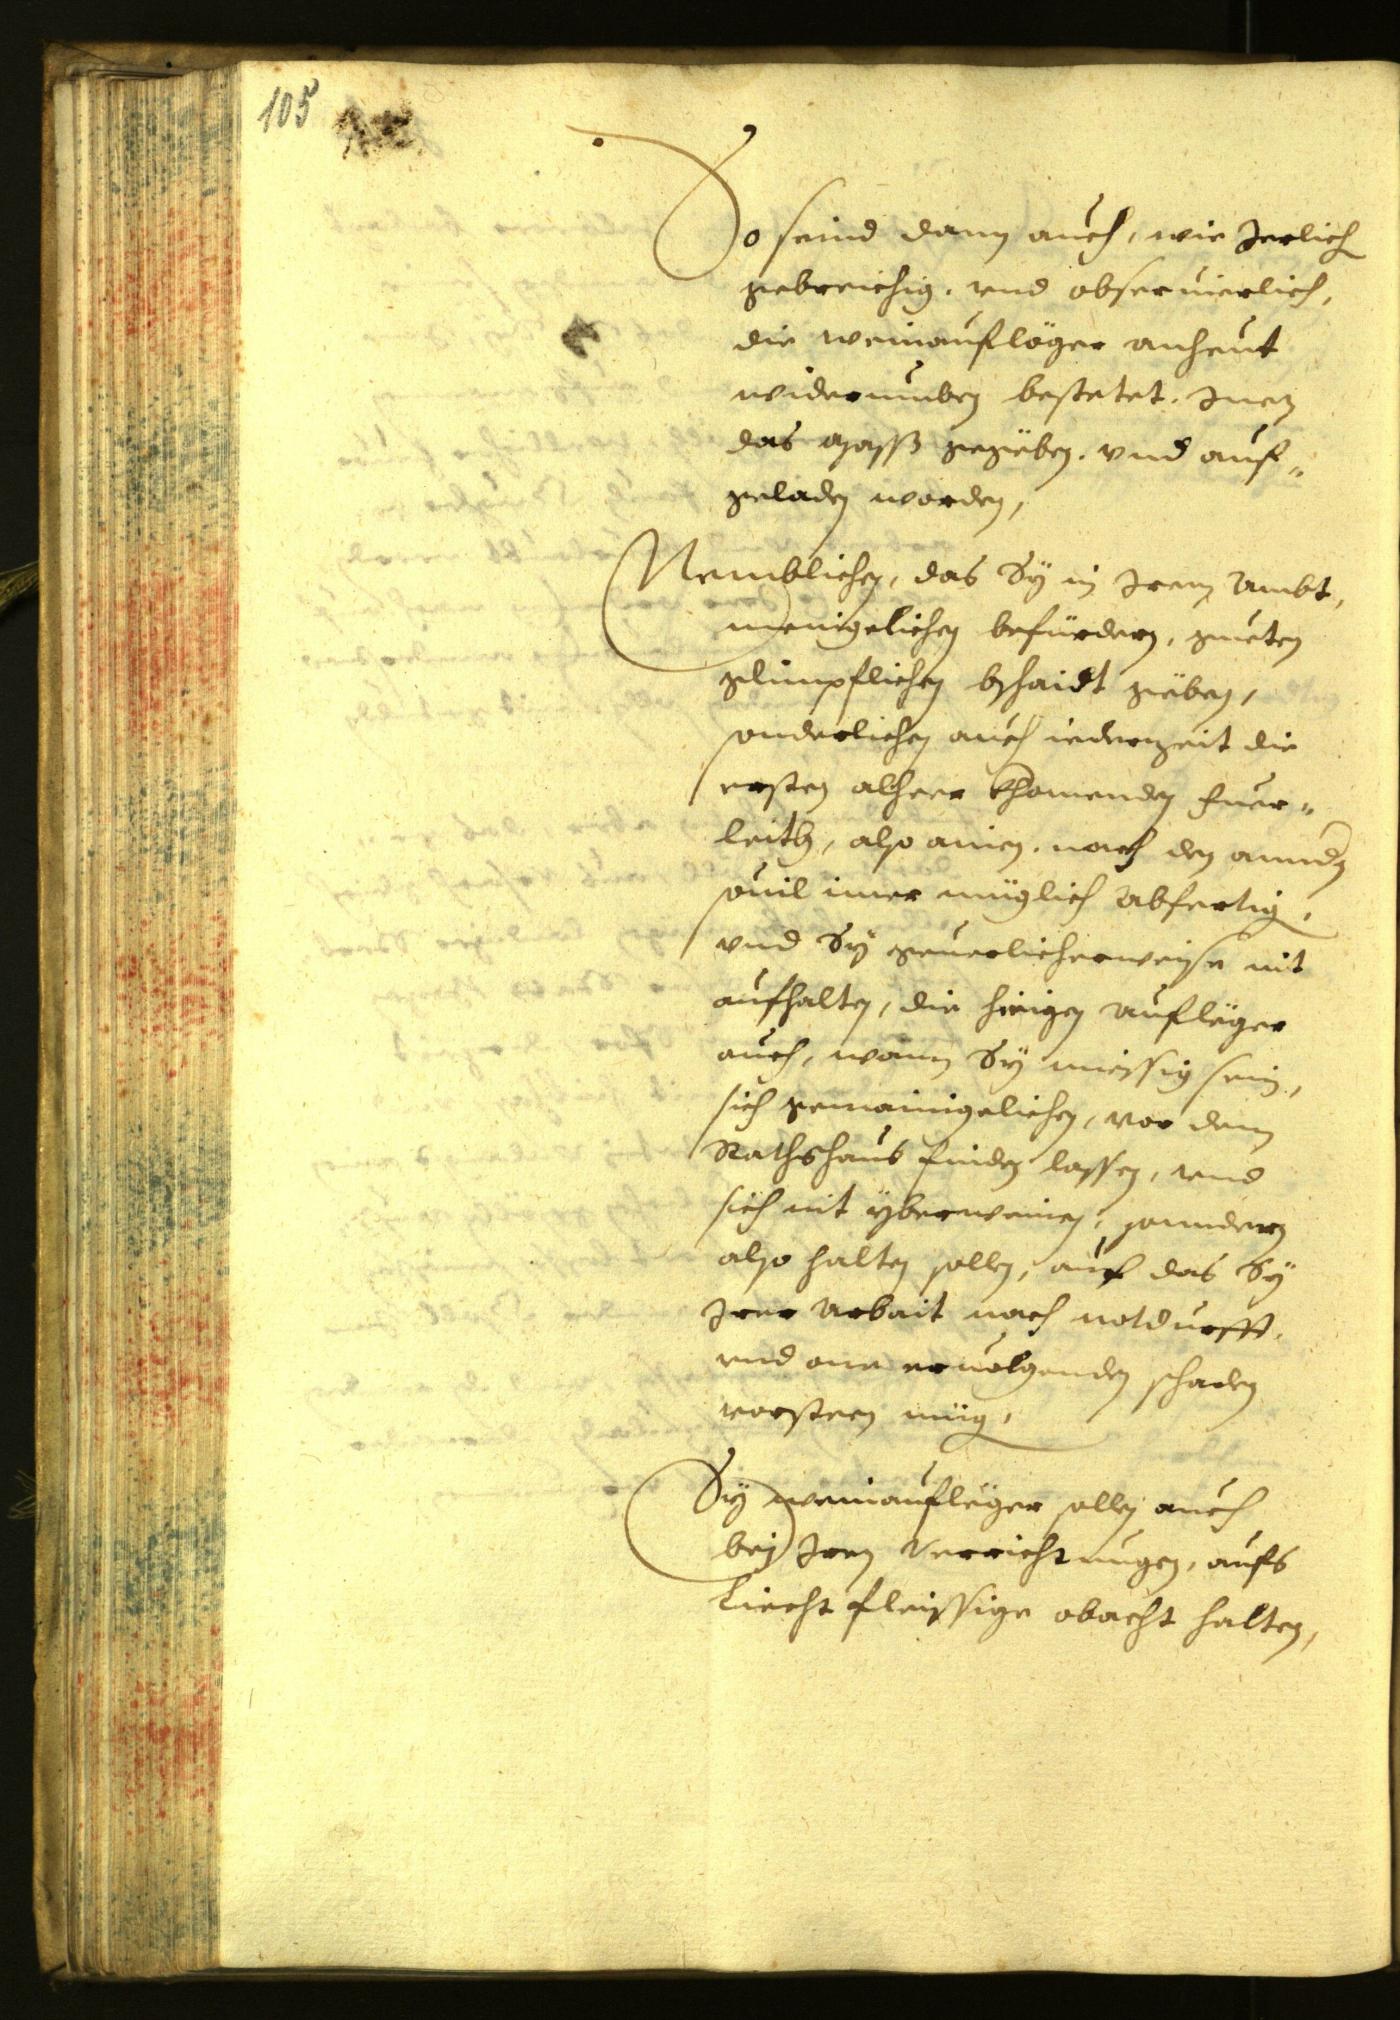 105
So seind dann auch, wie Jerlich
gebreichig, vnd obseruierlich,
die weinaufloger anheut
widerumben bestetet, Inen
das Mass gegeben, vnd auf„
geladen worden,
Nemblichen, das Sÿ in Irem Ambt,
menigelichen befürdern, gueten
glimpflichen bschaidt geben,
sonderlichen auch iederzeit die
ersten alheer khomenden Fuer„
leith, also ainen nach den anndern
souil imer müglich abfertigen,
vnd Sÿ geuerlicherweise nit
aufhalten, die hiesigen Aufleger
auch, wann Sÿ miessig sein,
sich gemainigelichen, vor dem
Rathshaus finden lassen, vnd
sich nit yberweinen, sonndern
also halten sollen, auf das Sÿ
Irer Arbait nach notdurfft,
vnd one eruolgenden schaden
vorsteen müg,
Sÿ weinaufleger sollen auch
bei Iren Verrichtungen, aufs
Liecht fleissige obacht halten,